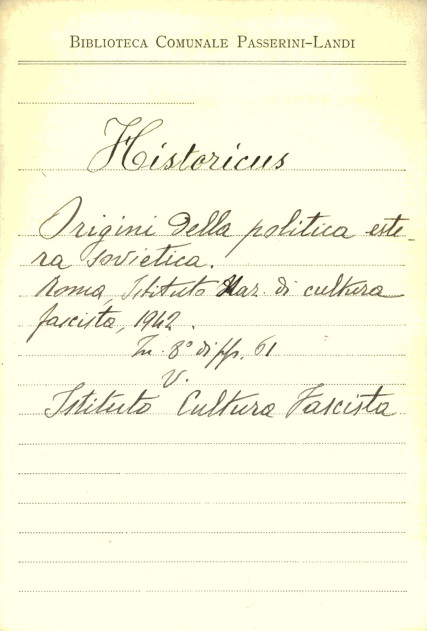 BIBLIOTECA COMUNALE PASSERINI-LANDI
Historicus
Origini della politica este-
ra sovietica.
Roma, Istituto Naz. di cultura
fascista, 1942.
In 8° di pp. 61
V.
Istituto Cultura Fascista